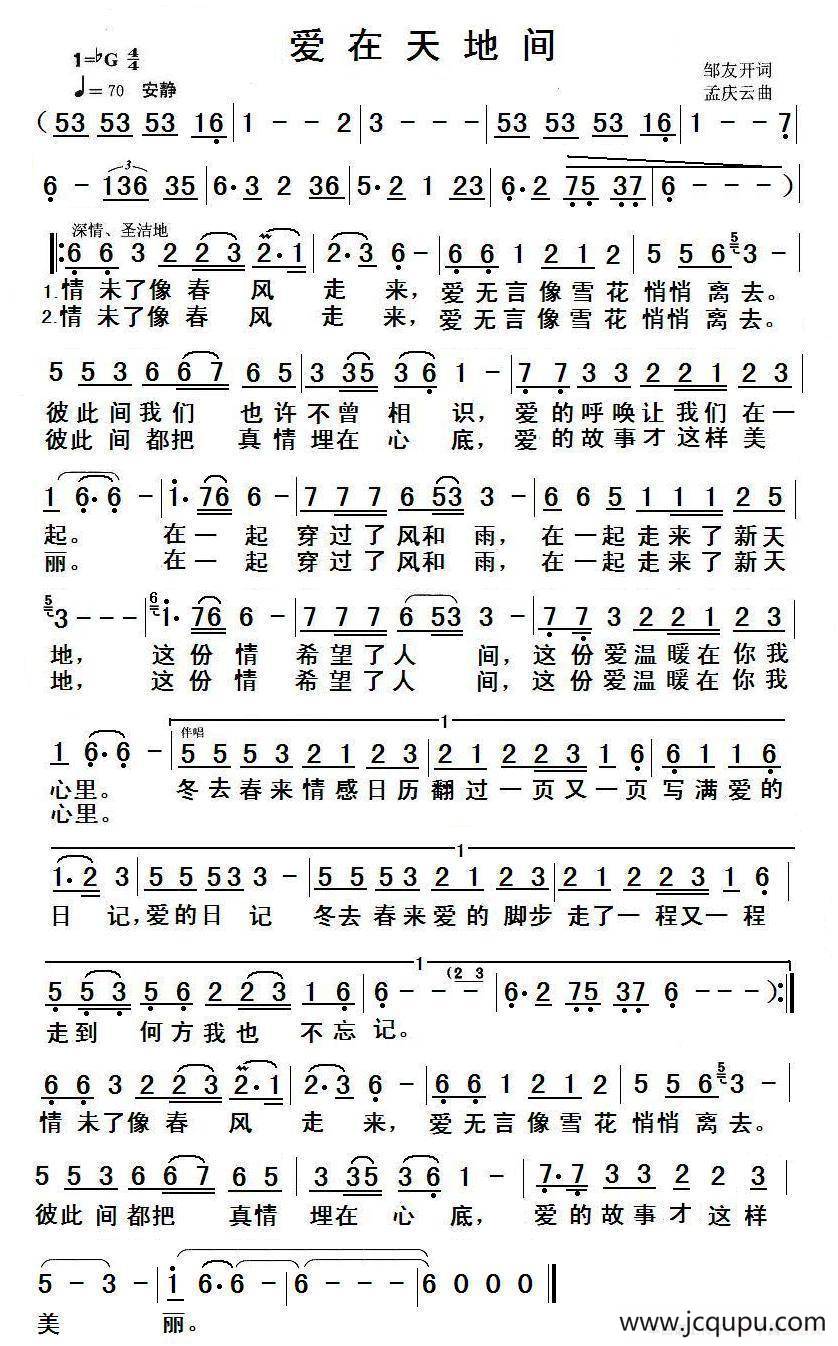 爱在天地间
1=♭G 4/4
♩=70 安静
邹友开词
孟庆云曲
(53 53 53 16 | 1 - - 2 | 3 - - - | 53 53 53 16 | 1 - - 7
6 - 136 35 | 6· 3 2 36 | 5· 2 1 23 | 6· 2 75 37 | 6 - - - )
深情、圣洁地
‖: 6 6 3 2 2 3 2· 1 | 2· 3 6 - | 6 6 1 2 1 2 | 5 5 6 5 3 - |
1.情未了像春风走来,爱无言像雪花悄悄离去。
2.情未了像春风走来,爱无言像雪花悄悄离去。
5 5 3 6 6 7 6 5 | 3 35 3 6 1 - | 7 7 3 3 2 2 1 2 3 |
彼此间我们也许不曾相识,爱的呼唤让我们在一
彼此间都把真情埋在心底,爱的故事才这样美
1 6· 6 - | 1· 76 6 - | 7 7 7 6 53 3 - | 6 6 5 1 1 1 2 5 |
起。在一起穿过了风和雨,在一起走来了新天
丽。在一起穿过了风和雨,在一起走来了新天
5 3 - - - | 6 1· 76 6 - | 7 7 7 6 53 3 - | 7 7 3 2 2 1 2 3 |
地,这份情希望了人间,这份爱温暖在你我
地,这份情希望了人间,这份爱温暖在你我
1
伴唱
1 6· 6 - | 5 5 5 3 2 1 2 3 | 2 1 2 2 3 1 6 | 6 1 1 1 6 |
心里。冬去春来情感日历翻过一页又一页写满爱的
心里。
1
1· 2 3 | 5 5 5 3 3 - | 5 5 5 3 2 1 2 3 | 2 1 2 2 3 1 6 |
日记,爱的日记冬去春来爱的脚步走了一程又一程
1
5 5 3 5 6 2 2 3 1 6 | 6 - - (2 3 - | 6· 2 75 37 6 - - - ) :‖
走到何方我也不忘记。
6 6 3 2 2 3 2· 1 | 2· 3 6 - | 6 6 1 2 1 2 | 5 5 6 5 3 - |
情未了像春风走来,爱无言像雪花悄悄离去。
5 5 3 6 6 7 6 5 | 3 35 3 6 1 - | 7· 7 3 3 2 2 3 |
彼此间都把真情埋在心底,爱的故事才这样
5 - 3 - | 1 6· 6 - | 6 - - - | 6 0 0 0 ‖
美丽。
www.jcqupu.com